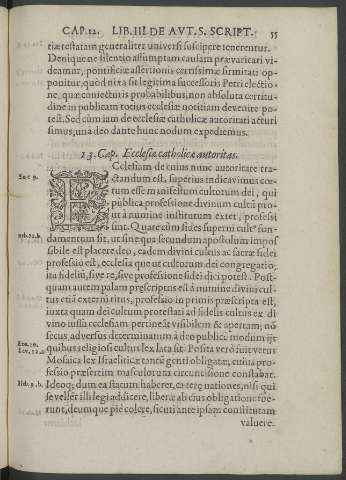 CAP. 12. LIB. III DE AVT. S. SCRIPT. 55
tiæ testatam generaliter vniuersi suscipere tenerentur.
Denique ne silentio assumptam causam præuaricari vi
deamur, pontificiæ assertionis certissimæ firmitati op-
ponitur, quòd nixa sit legitima successoris Petri electio
ne, quæ coniectiuis probabilibus, non absoluta certitu
dine in publicam totius ecclesiæ notitiam deuenire po-
test. Sed cùm iam de ecclesiæ catholicæ autoritati acturi
simus, vnà deo dante hunc nodum expediemus.
13. Cap. Ecclesiæ catholicæ autoritas.
ECclesiam de cuius nunc autoritate tra-
ctandum est, superius indicauimus cœ-
tum esse mansuetum cultorum dei, qui
publica professione diuinum cultū pro-
ut à numine institutum extet, professi
sint. Quare cùm fides superni cultꝰ fun-
damentum sit, vt sine qua secundum apostolum impos
sibile est placere deo, eadem diuini cultus ac sacræ fidei
professio est, ecclesia quæ vt cultorum dei congregatio,
ita fidelium, siue re, siue professione fidei dici potest. Post-
quam autem palam præscriptus est à numine diuini cul-
tus etiā externi ritus, professio in primis præscripta est,
iuxta quam dei cultum protestati ad fidelis cultus ex di
uino iussu ecclesiam pertineāt visibilem & apertam; nō
secus, aduersus determinatum à deo publicè modum ijs
quibus religiosi cultus lex lata sit. Posita verò fuit verus
Mosaica lex Israëliticæ tantū genti obligatæ, cuius pro-
fessio præsertim masculorum circuncisione constabat.
Ideoq; dum ea status haberet, cæteræ nationes, nisi qui
se vellet illi legi addicere, liberæ ab eius obligatione fue-
runt, deumque piè colere, sicuti ante ipsam constitutam
valuere.